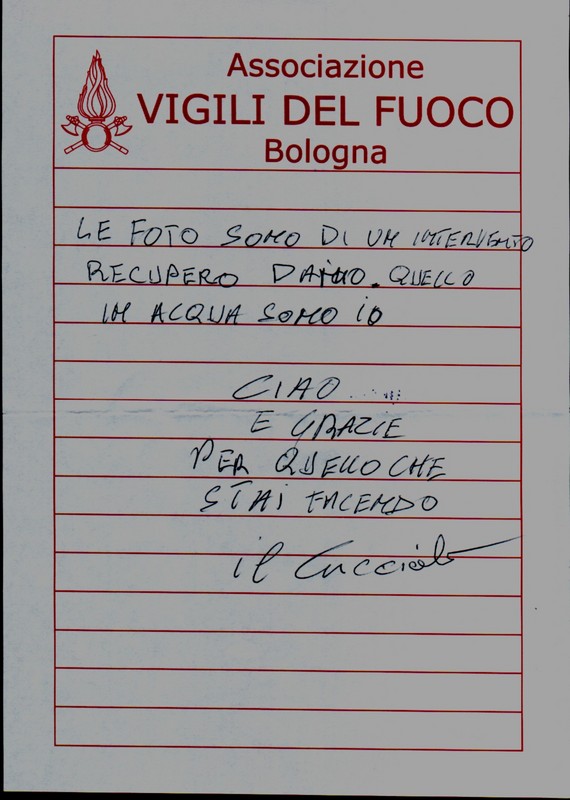 Associazione
VIGILI DEL FUOCO
Bologna
LE FOTO SONO DI UN INTERVENTO
RECUPERO DAINO. QUELLO
IN ACQUA SONO IO
CIAO.....
E GRAZIE
PER QUELLO CHE
STAI FACENDO
il Cucciolo